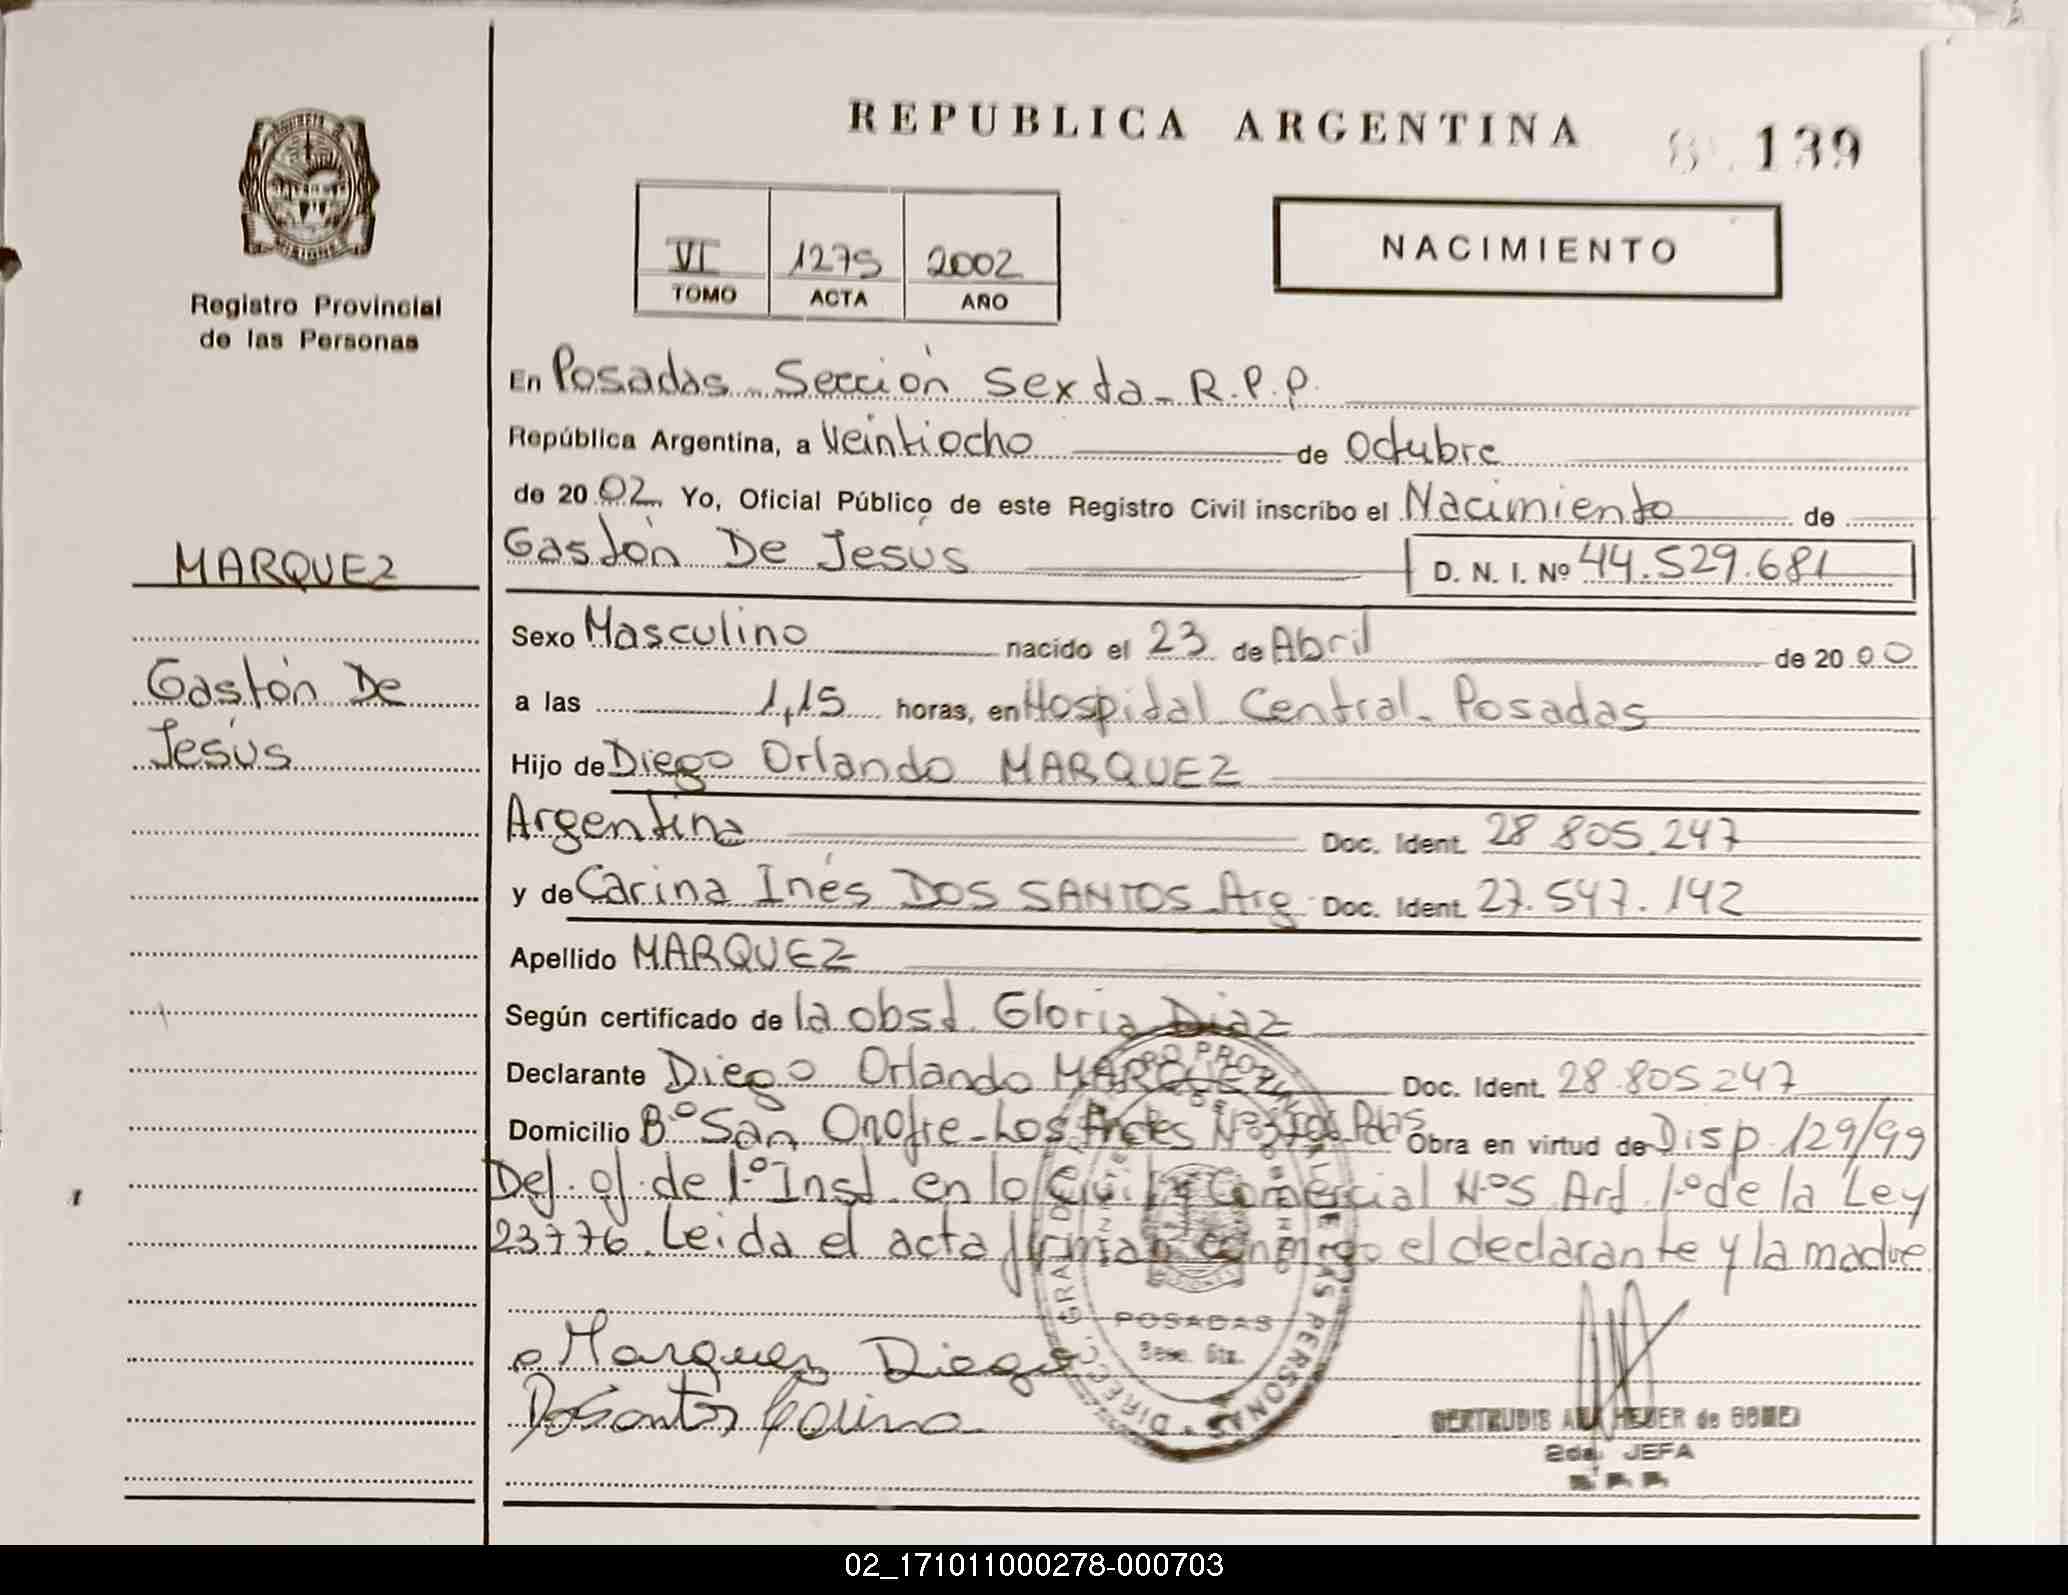 REPUBLICA ARGENTINA
139
VI 1275 2002
TOMO ACTA AÑO
NACIMIENTO
Registro Provincial
de las Personas
MARQUEZ
Gastón De
Jesús
En Posadas - Sección Sexta - R.P.P.
República Argentina, a Veintiocho de Octubre
de 2002 Yo, Oficial Público de este Registro Civil inscribo el Nacimiento de
Gastón De Jesús D. N. I. Nº 44.529.681
Sexo Masculino nacido el 23 de Abril de 2000
a las 1,15 horas, en Hospital Central - Posadas
Hijo de Diego Orlando MARQUEZ
Argentina Doc. Ident. 28 805.247
y de Carina Inés DOS SANTOS - Arg Doc. Ident. 27.547.142
Apellido MARQUEZ
Según certificado de la obst. Gloria Diaz
Declarante Diego Orlando MARQUEZ Doc. Ident. 28.805247
Domicilio Bº San Onofre - Los Andes Pdas Obra en virtud de Disp. 129/99
Def. of. de 1º Inst. en lo Civil y Comercial Nº5 Art. 1º de la Ley
23776. Leida el acta firman conmigo el declarante y la madre
Marquez Diego
DoSantos Carina
POSADAS
DIREC. GRAL. DE LAS PERSONAS
GERTRUDIS de GOMEZ
2da. JEFA
02_171011000278-000703